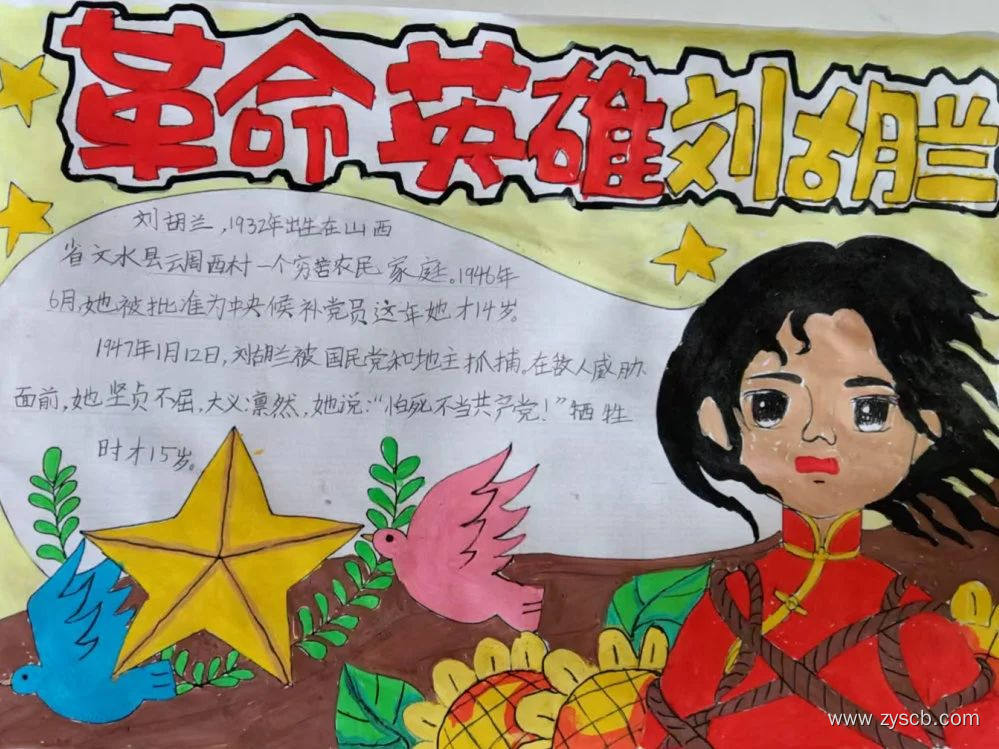 革命英雄刘胡兰
刘胡兰,1932年出生在山西
省文水县云周西村一个穷苦农民家庭。1946年
6月,她被批准为中央候补党员这年她才14岁。
1947年1月12日,刘胡兰被国民党和地主抓捕,在敌人威胁
面前,她坚贞不屈,大义凛然,她说:“怕死不当共产党!”牺牲
时才15岁。
www.zyscb.com